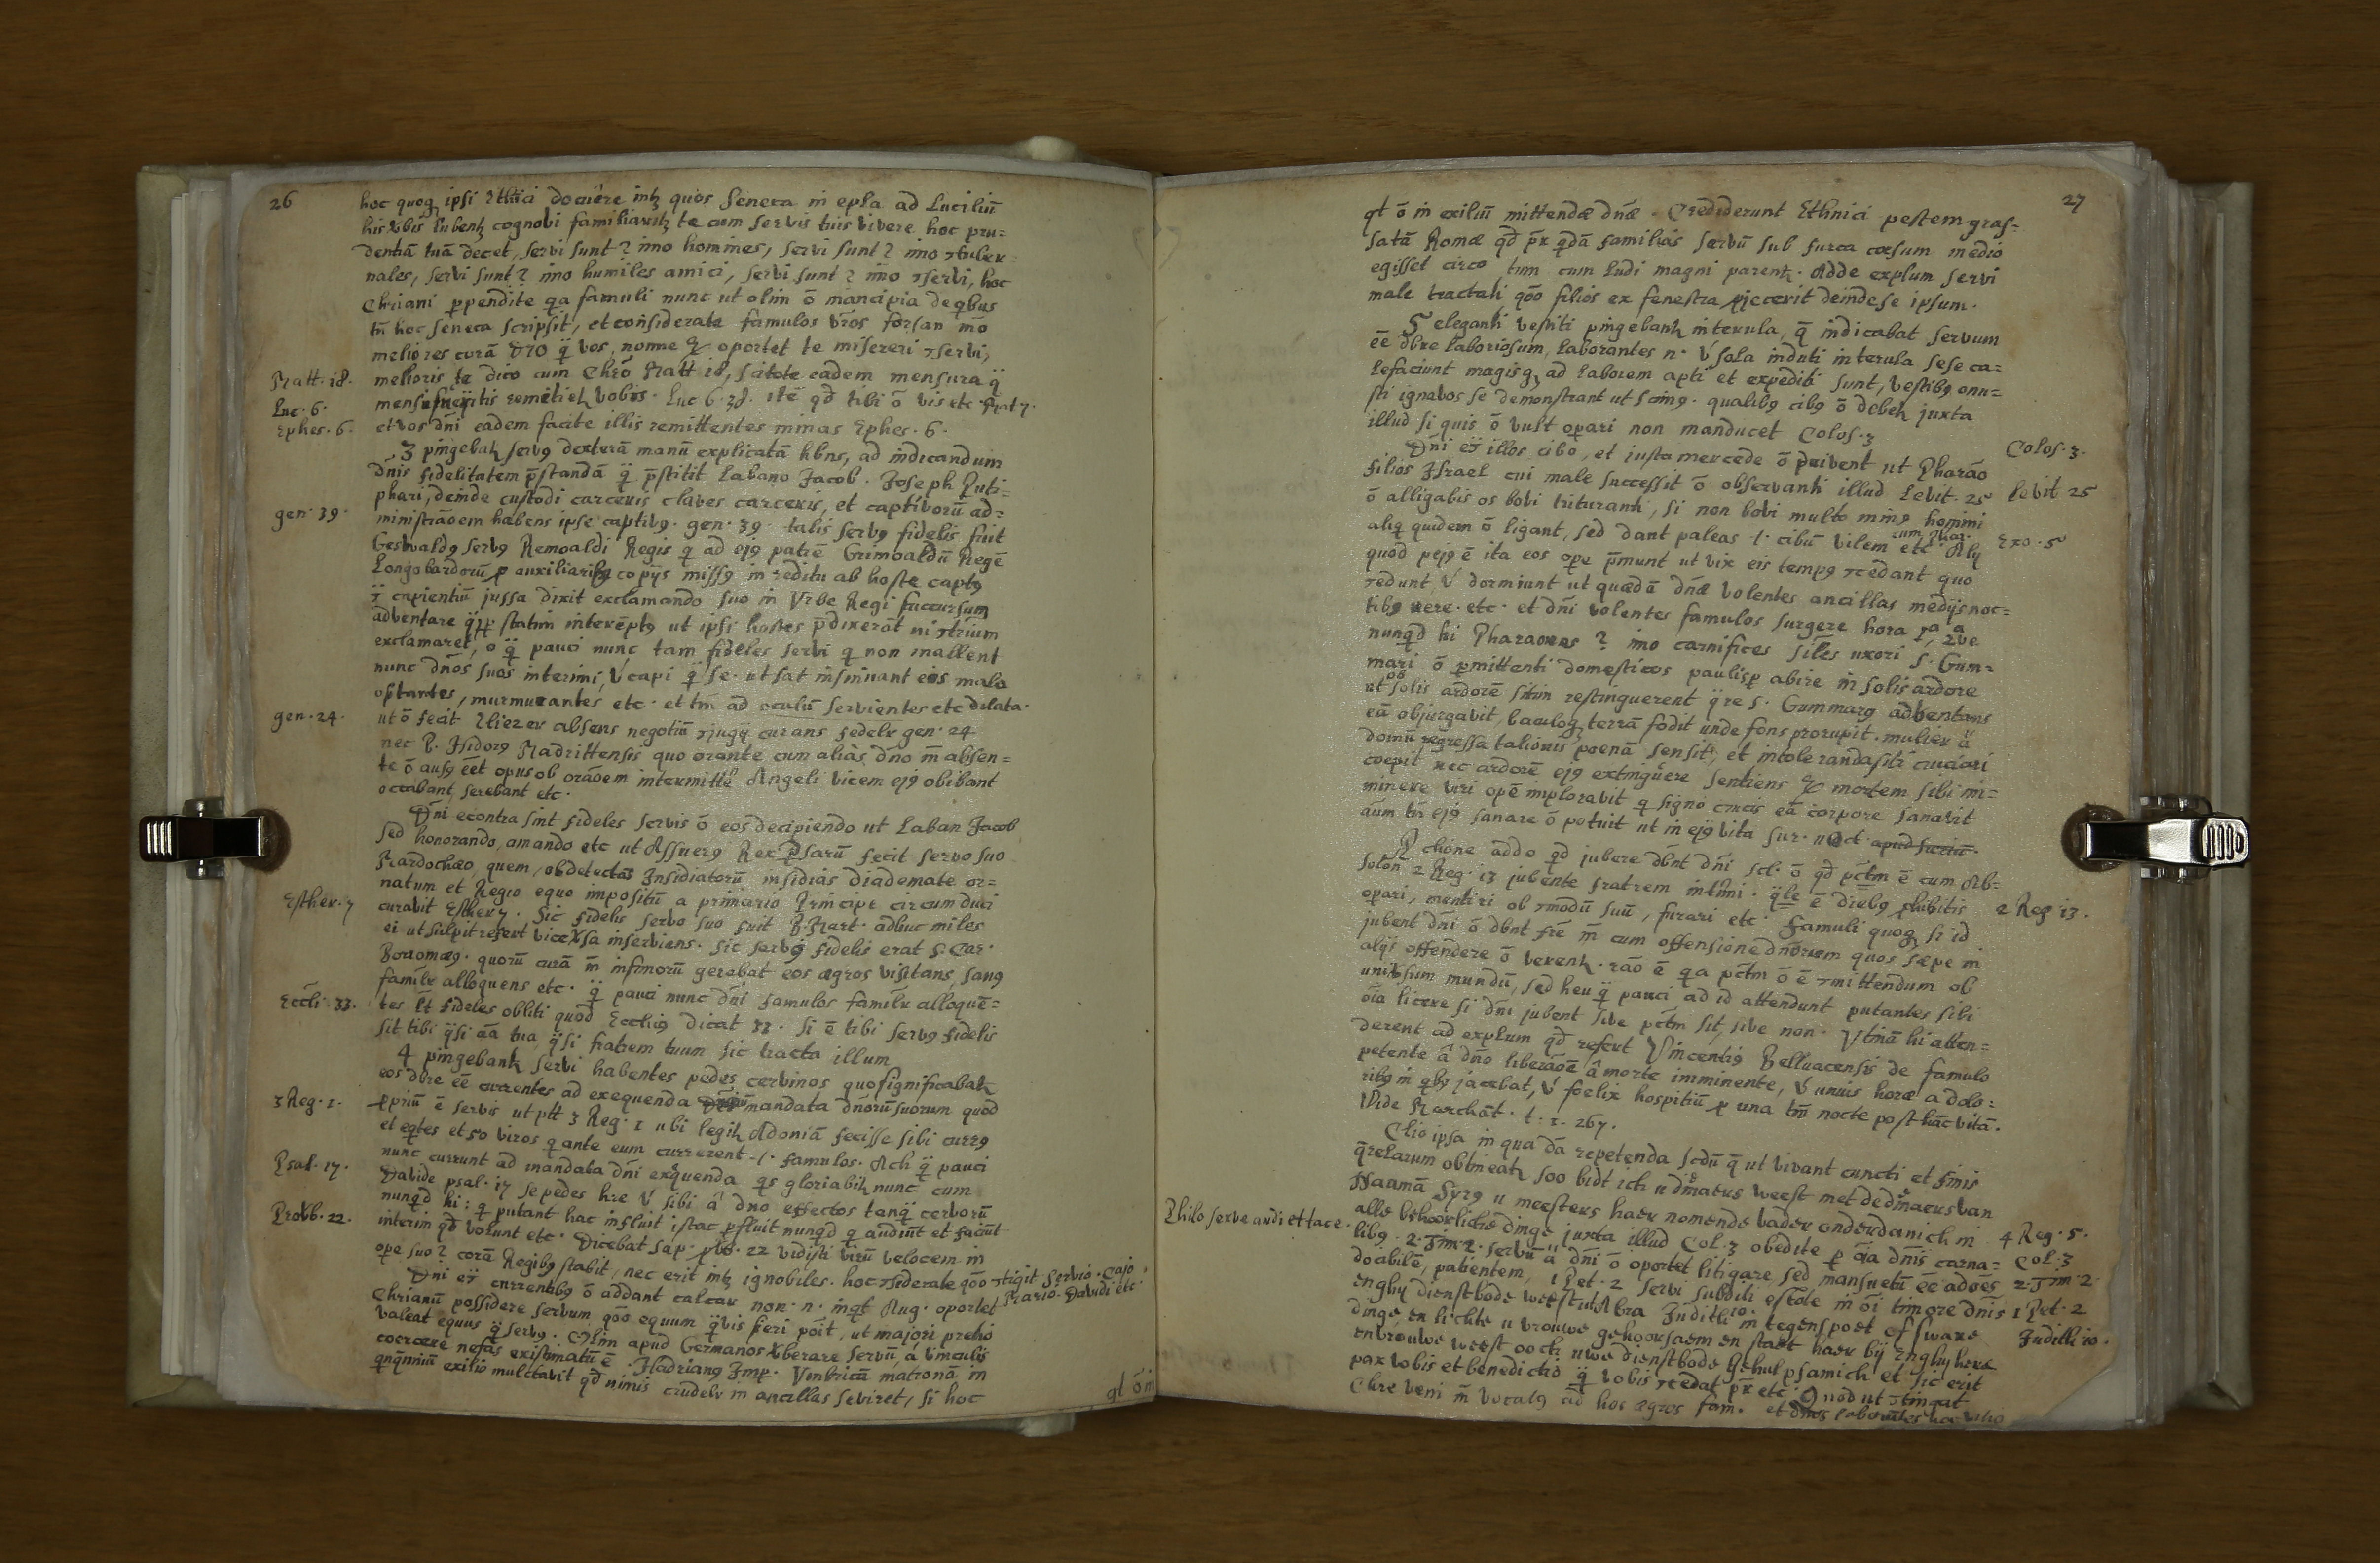 26
hoc quoq ipsi Ethnici docuêre intz quos Seneca in epla ad Luciliū
his vbis lubentz cognovi familiaritz te cum servis tuis vivere hoc pru=
dentiā tuā decet, servi sunt? imo homines, servi sunt? imo
nales, servi sunt? imo humiles amici, servi sunt? imo servi, hoc
Chriani ppendite qa famuli nunc ut olim ō mancipia de qbus
tñ hoc Seneca scripsit, et considerate famulos vros forsan
meliores corā DEO q̄ vos, nonne oportet te misereri servi,
Matt. 18.
melioris te dico cum Chrō Matt 18, scitote eadem mensura q̄
Luc. 6.
mensi fueritis remetietz vobis. Luc 6. 38. itē qd tibi ō vis etc Mat 7.
Ephes. 6.
et vos dñi eadem facite illis remittentes minas Ephes. 6.
3 pingebatz serv9 dexterā manū explicatā hbns, ad indicandum
dnis fidelitatem p̄standā q̄ p̄stitit Labano Jacob. Joseph Puti=
phari, deinde custodi carceris claves carceris, et captivorū ad=
gen. 39.
ministrāoem habens ipse captiv9. gen. 39. talis serv9 fidelis fuit
Gesvald9 serv9 Remoaldi Regis q ad ej9 patrē Grimoaldū Regē
Longobardorū p auxiliarib9 copijs miss9 in reditu ab hoste capt9
capientiū jussa dixit exclamando suo in Vrbe Regi succursum
adventare statim interēpt9 ut ipsi hostes p̄dixerāt ni
exclamaret, o q̄ pauci nunc tam fideles servi q non mallent
nunc dnos suos interimi, V́ capi q̄ se. ut sat insinuant eis mala
optantes, murmurantes etc. et tm ad oculū servientes etc dilata.
gen. 24.
ut ō fecit Eliezer absens negotiū curans fidelr gen. 24
nec B. Isidor9 Madrittensis quo orante cum aliàs dno absen=
te ō aus9 eēt opus ob orāoem intermitte Angeli vicem ej9 obibant
occabant, serebant etc.
Dñi econtra sint fideles servis ō eos decipiendo ut Laban Jacob
sed honorando, amando etc ut Assuer9 Rex Psarū fecit servo suo
Mardochæo, quem, ob detectas Insidiatorū insidias diademate or=
natum et Regio equo impositū a primario Principe circumduci
Esther. 7
curavit Esther 7. Sic fidelis servo suo fuit B. Mart. adhuc miles
ei ut Sulpit refert vice Vsa inserviens. sic serv9 fidelis erat S. Car.
Borromæ9. quorū curā infimorū gerebat eos ægros visitans, san9
familr alloquens etc. q̄ pauci nunc dñi famulos familr alloquē=
Eccli. 33.
tes fideles obliti quod Eccli9 dicat 33. si ē tibi serv9 fidelis
sit tibi q̄si aā tua, q̄si fratrem tuum sic tracta illum
4 pingebantz servi habentes pedes cervinos quo significabatz
eos dbre eē currentes ad exequenda mandata dnorū suorum quod
3 Reg. 1.
ppriū ē servis ut 3 Reg. 1 ubi legitz Adoniā fecisse sibi curr9
et eqtes et 50 viros q ante eum currerent .1. famulos. Ach q̄ pauci
nunc currunt ad mandata dñi exequenda qs gloriabitz nunc cum
Psal. 17.
Davide psal. 17 se pedes hre V́ sibi â dno effectos tanq cervorū
nunqd hi: q putant hac influit istac pfluit nunqd q audiūt et faciūt
Provb. 22.
interim qd volunt etc. Dicebat sap. 22 vidisti virū velocem in
ope suo? corā Regib9 stabit, nec erit intz ignobiles. hoc siderate qōo tigit servio. Cajo
Mario. Davidi etc
Dñi currentib9 ō addant calcar non. n. inqt Aug. oportet
Chrianū possidere servum qōo equum q̄vis fieri pōit, ut majori pretio
valeat equus q̄ serv9. Olim apud Germanos Vberare servū, á vinculis
coercere nefas existimatū ē. Hadrian9 Imp. Vmbricā matronā in
qnqnniū exilio mulctavit qd nimis crudelr in ancillas seviret, si hoc
qt ō in
27
qt ō in exiliū mittendæ dnæ. Crediderunt Ethnici pestem gras=
satā Romæ qd pr qdā familiâs servū sub furca cæsum medio
egisset circo tum cum ludi magni parentz. Adde explum servi
male tractati qōo filios ex fenestra pjecerit deinde se ipsum.
5 eleganti vestiti pingebantz interula, q̄ indicabat servum
eē dbre laboriosum, laborantes n. V́ sola induti interula sese ca=
lefaciunt magisq ad laborem apti et expediti sunt, vestib9 onu=
sti ignavos se demonstrant ut scim9. qualib9 cib9 ō debetz juxta
illud si quis ō vult opari non manducet Colos. 3
Colos. 3.
Dñi illos cibo, et justa mercede ō privent ut Pharāo
filios Israel cui male successit ō observanti illud Levit. 25
Levit 25
ō alligabis os bovi trituranti, si non bovi multo min9 homini
aliq quidem ō ligant, sed dant paleas .1. cibū vilem cum Phar. etc Alij
Exo. 5
quod pej9 ē ita eos ope p̄munt ut vix eis temp9 cēdant quo
redunt V́ dormiant ut quædā dnæ volentes ancillas medijs noc=
tib9 nere. etc. et dñi volentes famulos surgere hora 1a, 2a
nunqd hi Pharaones? imo carnifices siles uxori S. Gum=
mari ō pmittenti domesticos paulisp abire in solis ardore
ut ob solis ardorē sitim restinguerent q̄ re S. Gummar9 adventans
eā objurgavit, baculoq terrā fodit unde fons prorupit. mulier
domū regressa talionis poenā sensit, et intoleranda siti cruciari
coepit nec ardorē ej9 extinguere sentiens mortem sibi im=
minere viri opē imploravit q signo crucis eā corpore sanavit
aūm tñ ej9 sanare ō potuit ut in ej9 vita Sur. noct. apud Surium.
addo qd jubere dbnt dñi scl. ō qd pctm ē cum Ab=
solon 2 Reg. 13 jubente fratrem intimi. qle ē dieb9 phibitis
2 Reg 13.
opari, mentiri ob modū suū, furari etc. Famuli quoq si id
jubent dñi ō dbnt fre cum offensione dnorum quos sæpe in
alijs offendere ō verentz. rāo ē qa pctm ō ē mittendum ob
univsum mundū, sed heu q̄ pauci ad id attendunt putantes sibi
oīa licere si dñi jubent sive pctm sit, sive non. Vtinā hi atten=
derent ad explum qd refert Vincenti9 Belluacensis de famulo
petente â dno liberāoē â morte imminente, V́ unius horæ a dolo=
rib9 in qb9 jacebat, V́ foelix hospitiū p una tm nocte post hāc vitā.
Vide Marchāt. t. 1. 267.
Clio ipsa in qua dā repetenda scdū q̄ ut vivant cuncti et finis
q̄relarum obtineatz soo bidt ich u dmaeters weest met de dmaeters van
Naamā Syr9 u meesters haer nomende vader onderdanich in
4 Reg. 5.
Philo serve audi et tace.
alle behoorlicke dinge juxta illud Col. 3 obedite p oīa dnis carna=
Col. 3
lib9. 2. Tim. 2. servū dñi ō oportet litigare sed mansuetū eē ad oēs
2. Tim. 2.
docibilē, patientem, 1 Pet. 2 servi subditi estote in oī timore dnis
1 Pet. 2
enghy dienstbode weest ut Abra Judith 10. in tegenspoet of sware
Judith. 10.
dinge, en lichte u vrouwe gehoorsaem en staet haer bij enghy heere
en vrouwe weest ooch uwe dienstbode behulpsamich et sic erit
pax vobis et benedictio q̄ vobis cedat pr etc. Quod ut tingat
Chre veni vocat9 ad hos ægros fam. et dnos